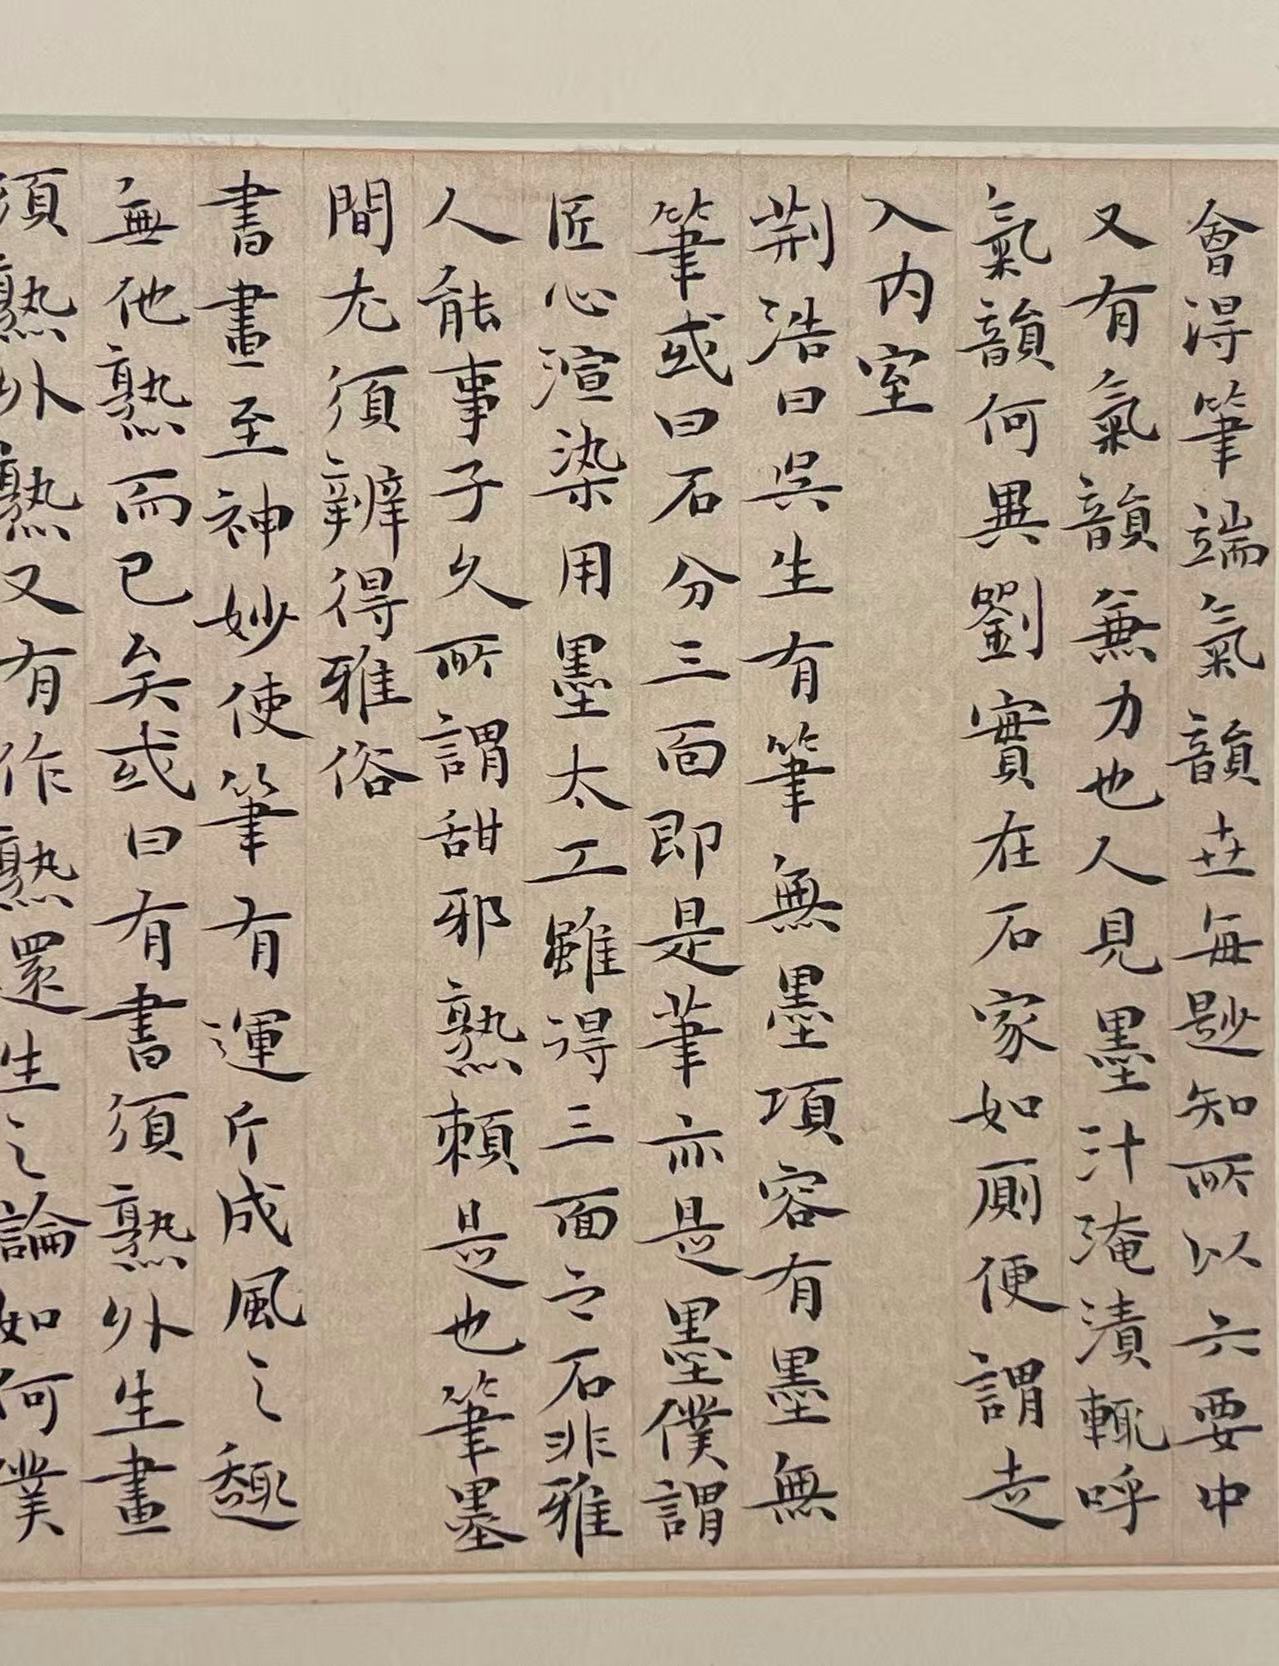 會得筆端氣韻世每尟知所以六要中
又有氣韻兼力也人見墨汁淹漬輒呼
氣韻何異劉實在石家如厠便謂走
入內室
荆浩曰吳生有筆無墨項容有墨無
筆或曰石分三面即是筆亦是墨僕謂
匠心渲染用墨太工雖得三面之石非雅
人能事子久所謂甜邪熟頼是也筆墨
間尤須辨得雅俗
書畫至神妙使筆有運斤成風之趣
無他熟而已矣或曰有書須熟外生畫
須熟外熟又有作熟還生之論如何僕